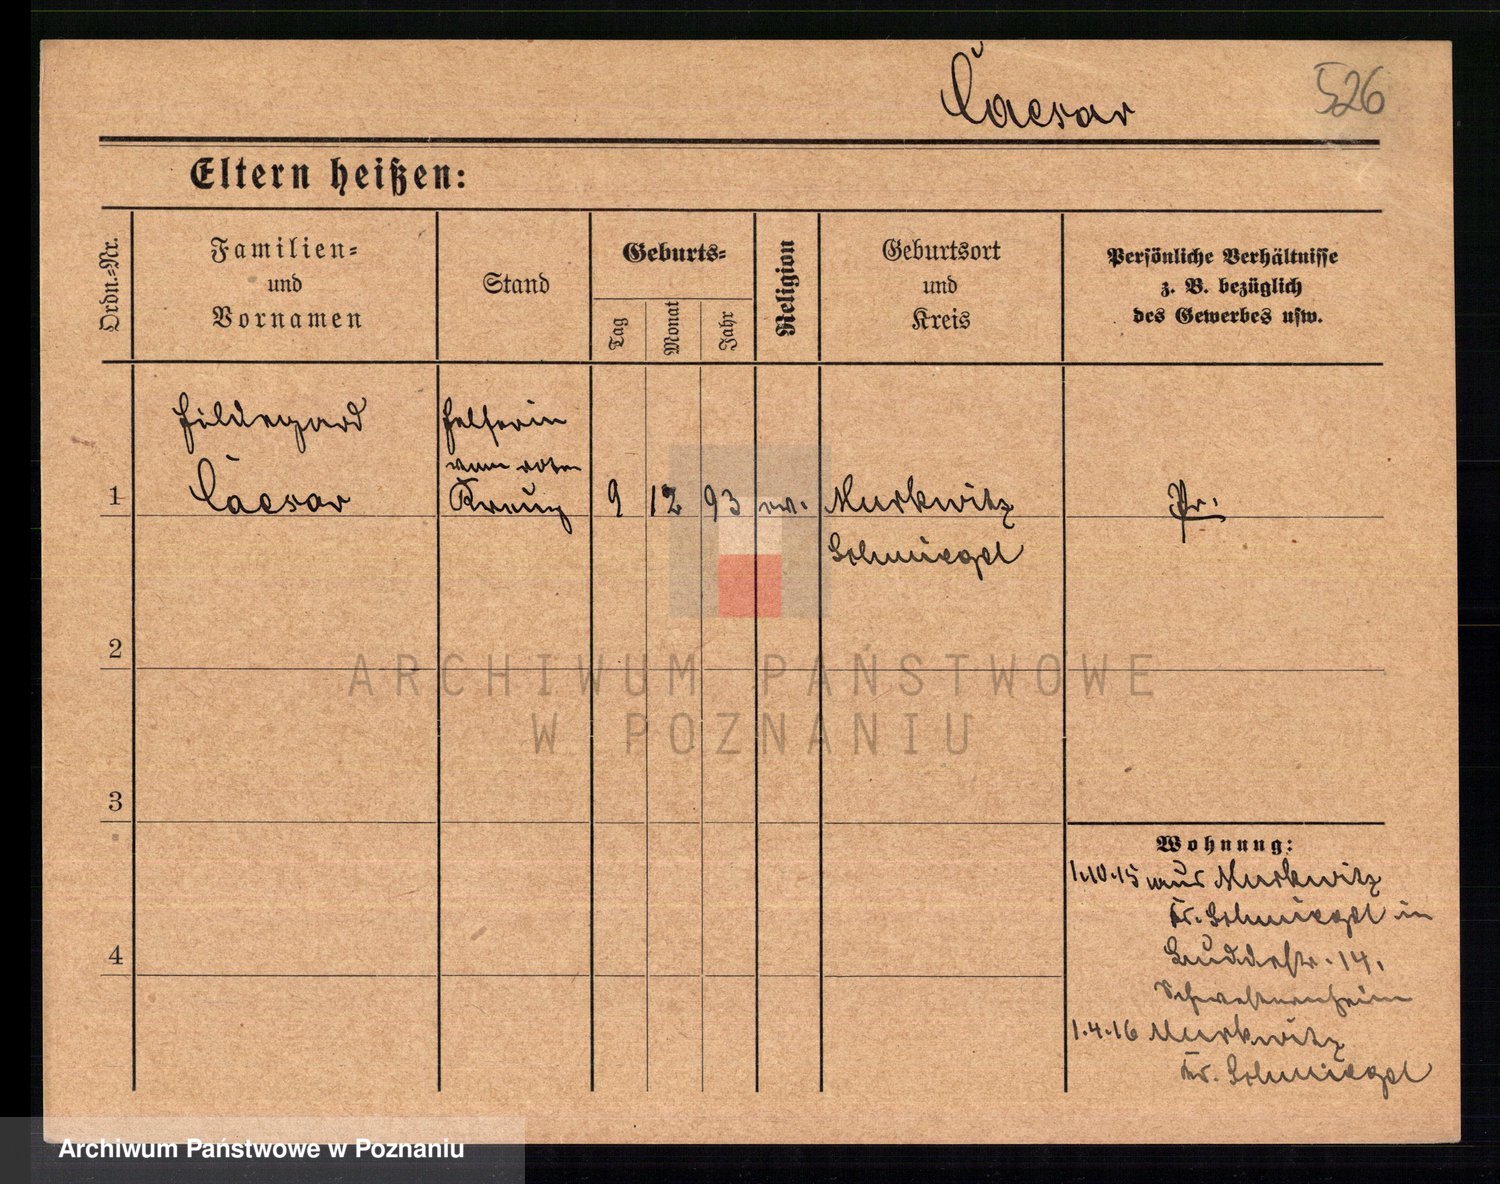 Caesar
526
Eltern heißen:
Ordn.-Nr.
Familien-
und
Vornamen
Stand
Geburts-
Tag
Monat
Jahr
Religion
Geburtsort
und
Kreis
Persönliche Verhältnisse
z. B. bezüglich
des Gewerbes usw.
1
Hildegard
Caesar
Helferin
vom roten
Kreuz
9
12
93
ev.
Murkwitz
Schmiegel
Pr.
2
3
4
Wohnung:
1.10.15 aus Murkwitz
Kr. Schmiegel in
14.
Schwesternheim
1.4.16 Murkwitz
Kr. Schmiegel
ARCHIWUM PAŃSTWOWE
W POZNANIU
Archiwum Państwowe w Poznaniu